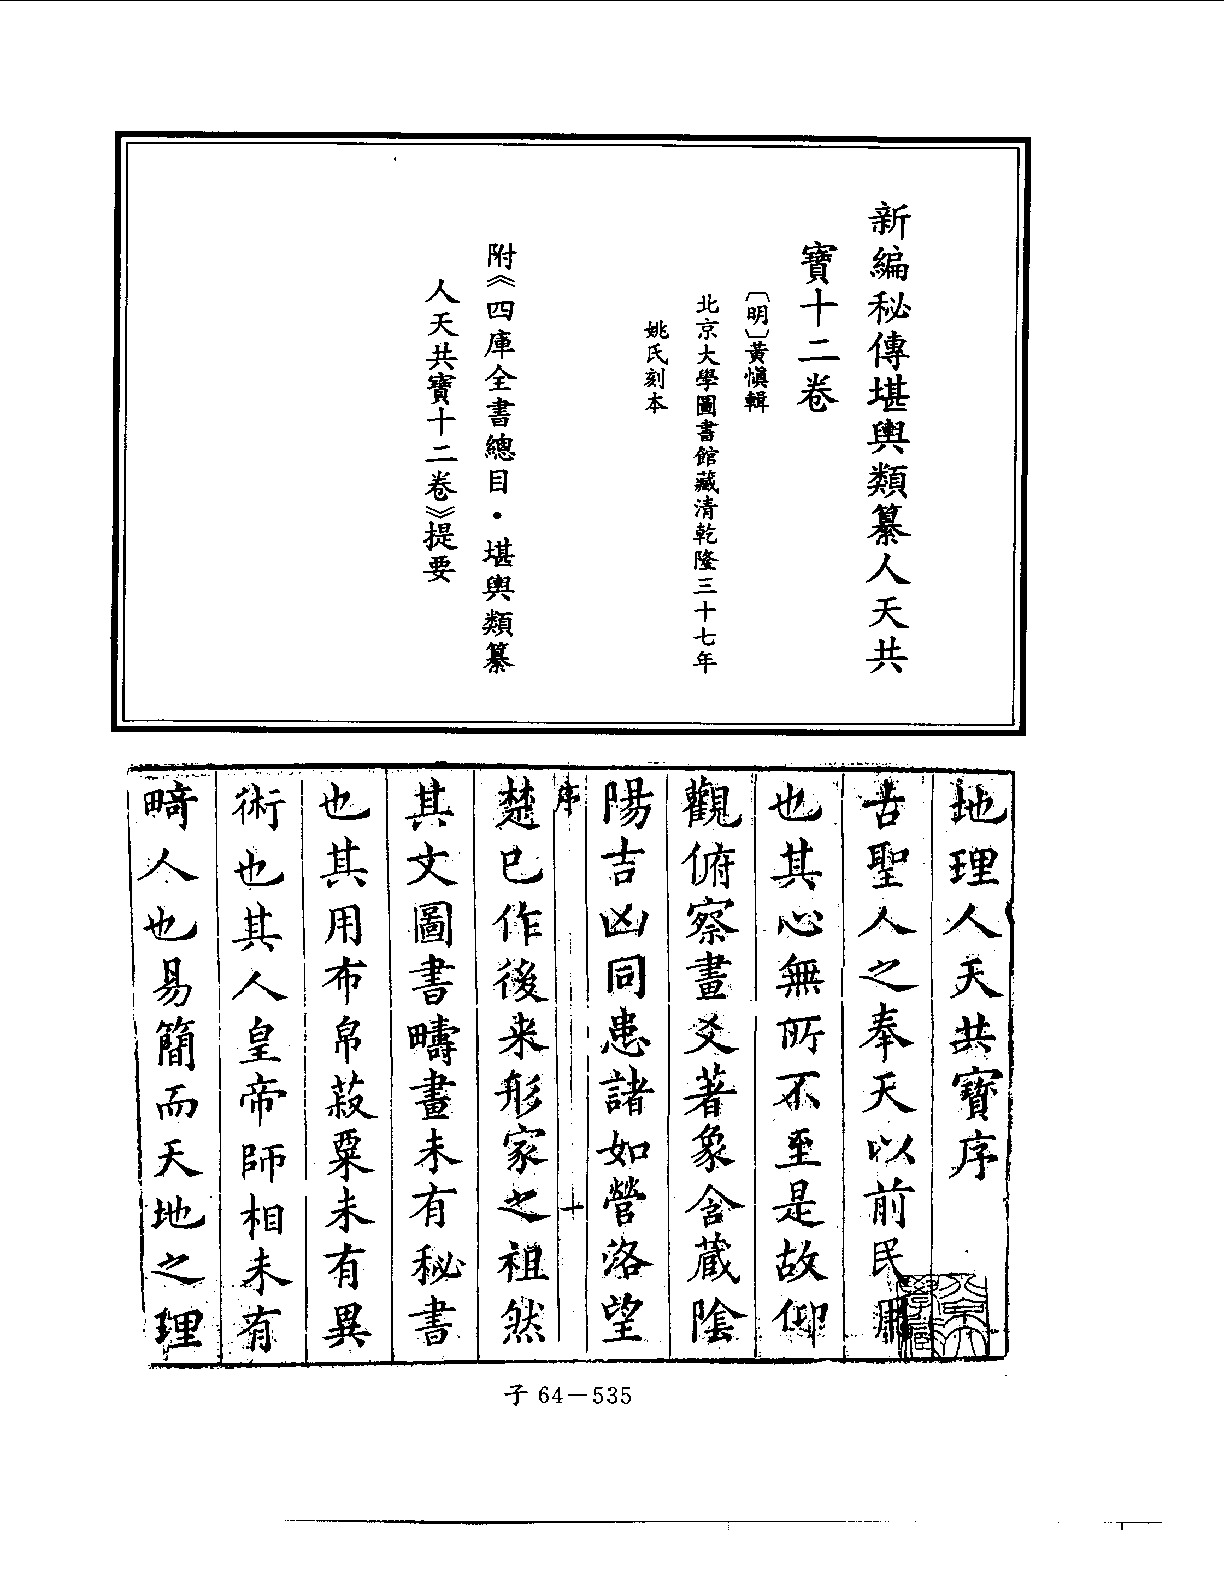 新編秘傳堪輿類纂人天共
寶十二卷
〔明〕黃慎輯
北京大學圖書館藏清乾隆三十七年
姚氏刻本
附《四庫全書總目·堪輿類纂
人天共寶十二卷》提要
地理人天共寶序
古聖人之奉天以前民用
也其心無所不至是故仰
觀俯察畫爻著象含蔵陰
陽吉凶同患諸如營洛望
序
十
楚已作後来形家之祖然
其文圖書疇畫未有秘書
也其用布帛菽粟未有異
術也其人皇帝師相未有
畸人也易簡而天地之理
子64－535